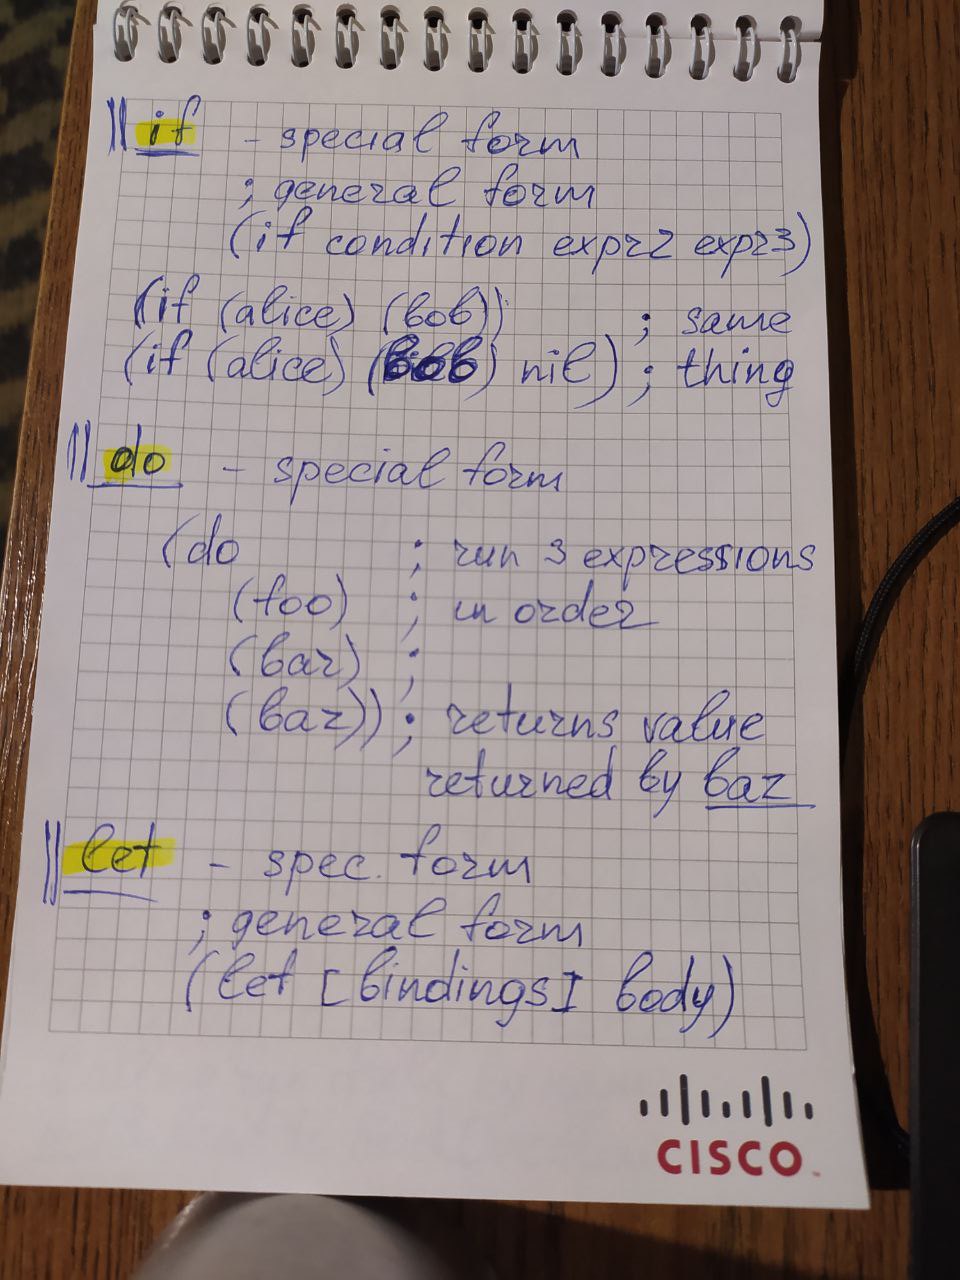 if - special form
; general form
(if condition expr2 expr3)
(if (alice) (bob)) ; same
(if (alice) (bob) nil) ; thing
do - special form
(do ; run 3 expressions
(foo) ; in order
(bar) ;
(baz)) ; returns value
returned by baz
let - spec. form
; general form
(let [bindings] body)
CISCO